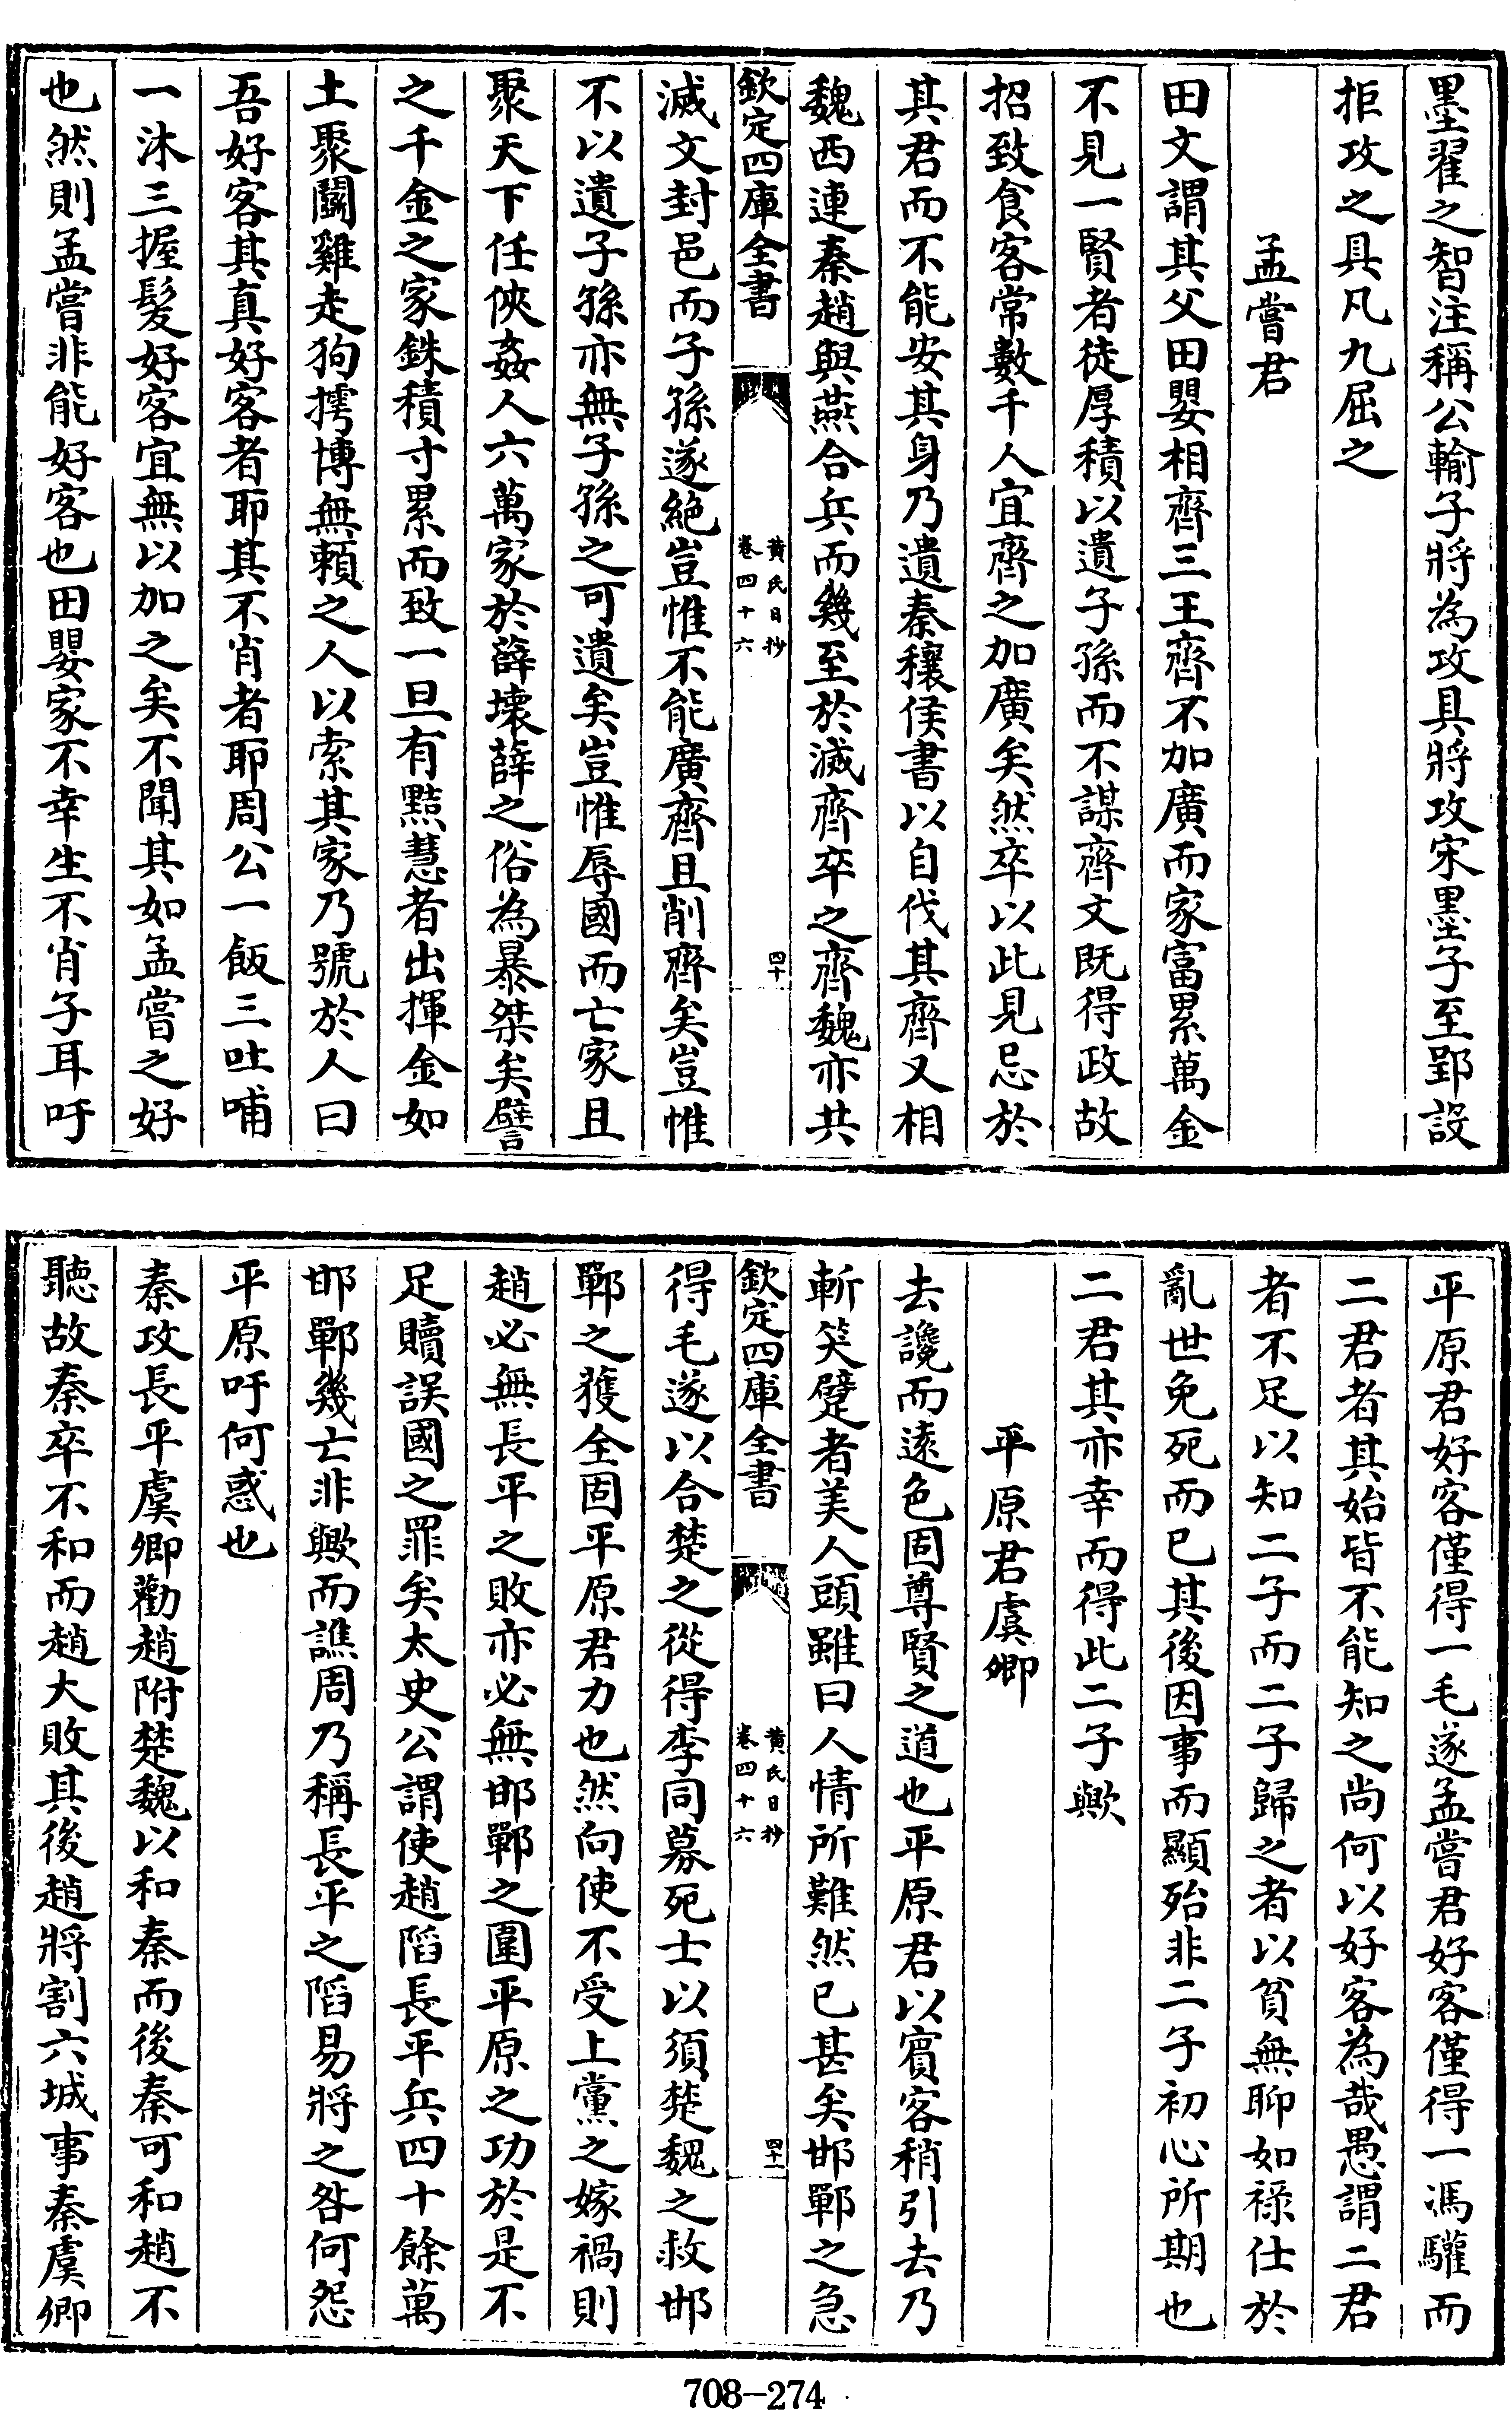 墨翟之智注稱公輸子將為攻具將攻宋墨子至郢設
拒攻之具凡九屈之
孟嘗君
田文謂其父田嬰相齊三王齊不加廣而家富累萬金
不見一賢者徒厚積以遺子孫而不謀齊文既得政故
招致食客常數千人宜齊之加廣矣然卒以此見忌於
其君而不能安其身乃遺秦穰侯書以自伐其齊又相
魏西連秦趙與燕合兵而幾至於滅齊卒之齊魏亦共
欽定四庫全書
黄氏日抄
卷四十六
四十
滅文封邑而子孫遂絶豈惟不能廣齊且削齊矣豈惟
不以遺子孫亦無子孫之可遺矣豈惟辱國而亡家且
聚天下任俠姦人六萬家於薛壞薛之俗為暴桀矣譬
之千金之家銖積寸累而致一旦有黠慧者出揮金如
土聚鬭雞走狗摴博無頼之人以索其家乃號於人曰
吾好客其真好客者耶其不肖者耶周公一飯三吐哺
一沐三握髮好客宜無以加之矣不聞其如孟嘗之好
也然則孟嘗非能好客也田嬰家不幸生不肖子耳吁
平原君好客僅得一毛遂孟嘗君好客僅得一馮驩而
二君者其始皆不能知之尚何以好客為哉愚謂二君
者不足以知二子而二子歸之者以貧無聊如祿仕於
亂世免死而已其後因事而顯殆非二子初心所期也
二君其亦幸而得此二子歟
平原君虞卿
去讒而逺色固尊賢之道也平原君以賓客稍引去乃
斬笑躄者美人頭雖曰人情所難然已甚矣邯鄲之急
欽定四庫全書
黄氏日抄
卷四十六
四十一
得毛遂以合楚之從得李同募死士以須楚魏之救邯
鄲之獲全固平原君力也然向使不受上黨之嫁禍則
趙必無長平之敗亦必無邯鄲之圍平原之功於是不
足贖誤國之罪矣太史公謂使趙陷長平兵四十餘萬
邯鄲幾亡非歟而譙周乃稱長平之陷易將之咎何怨
平原吁何惑也
秦攻長平虞卿勸趙附楚魏以和秦而後秦可和趙不
聽故秦卒不和而趙大敗其後趙將割六城事秦虞卿
708-274